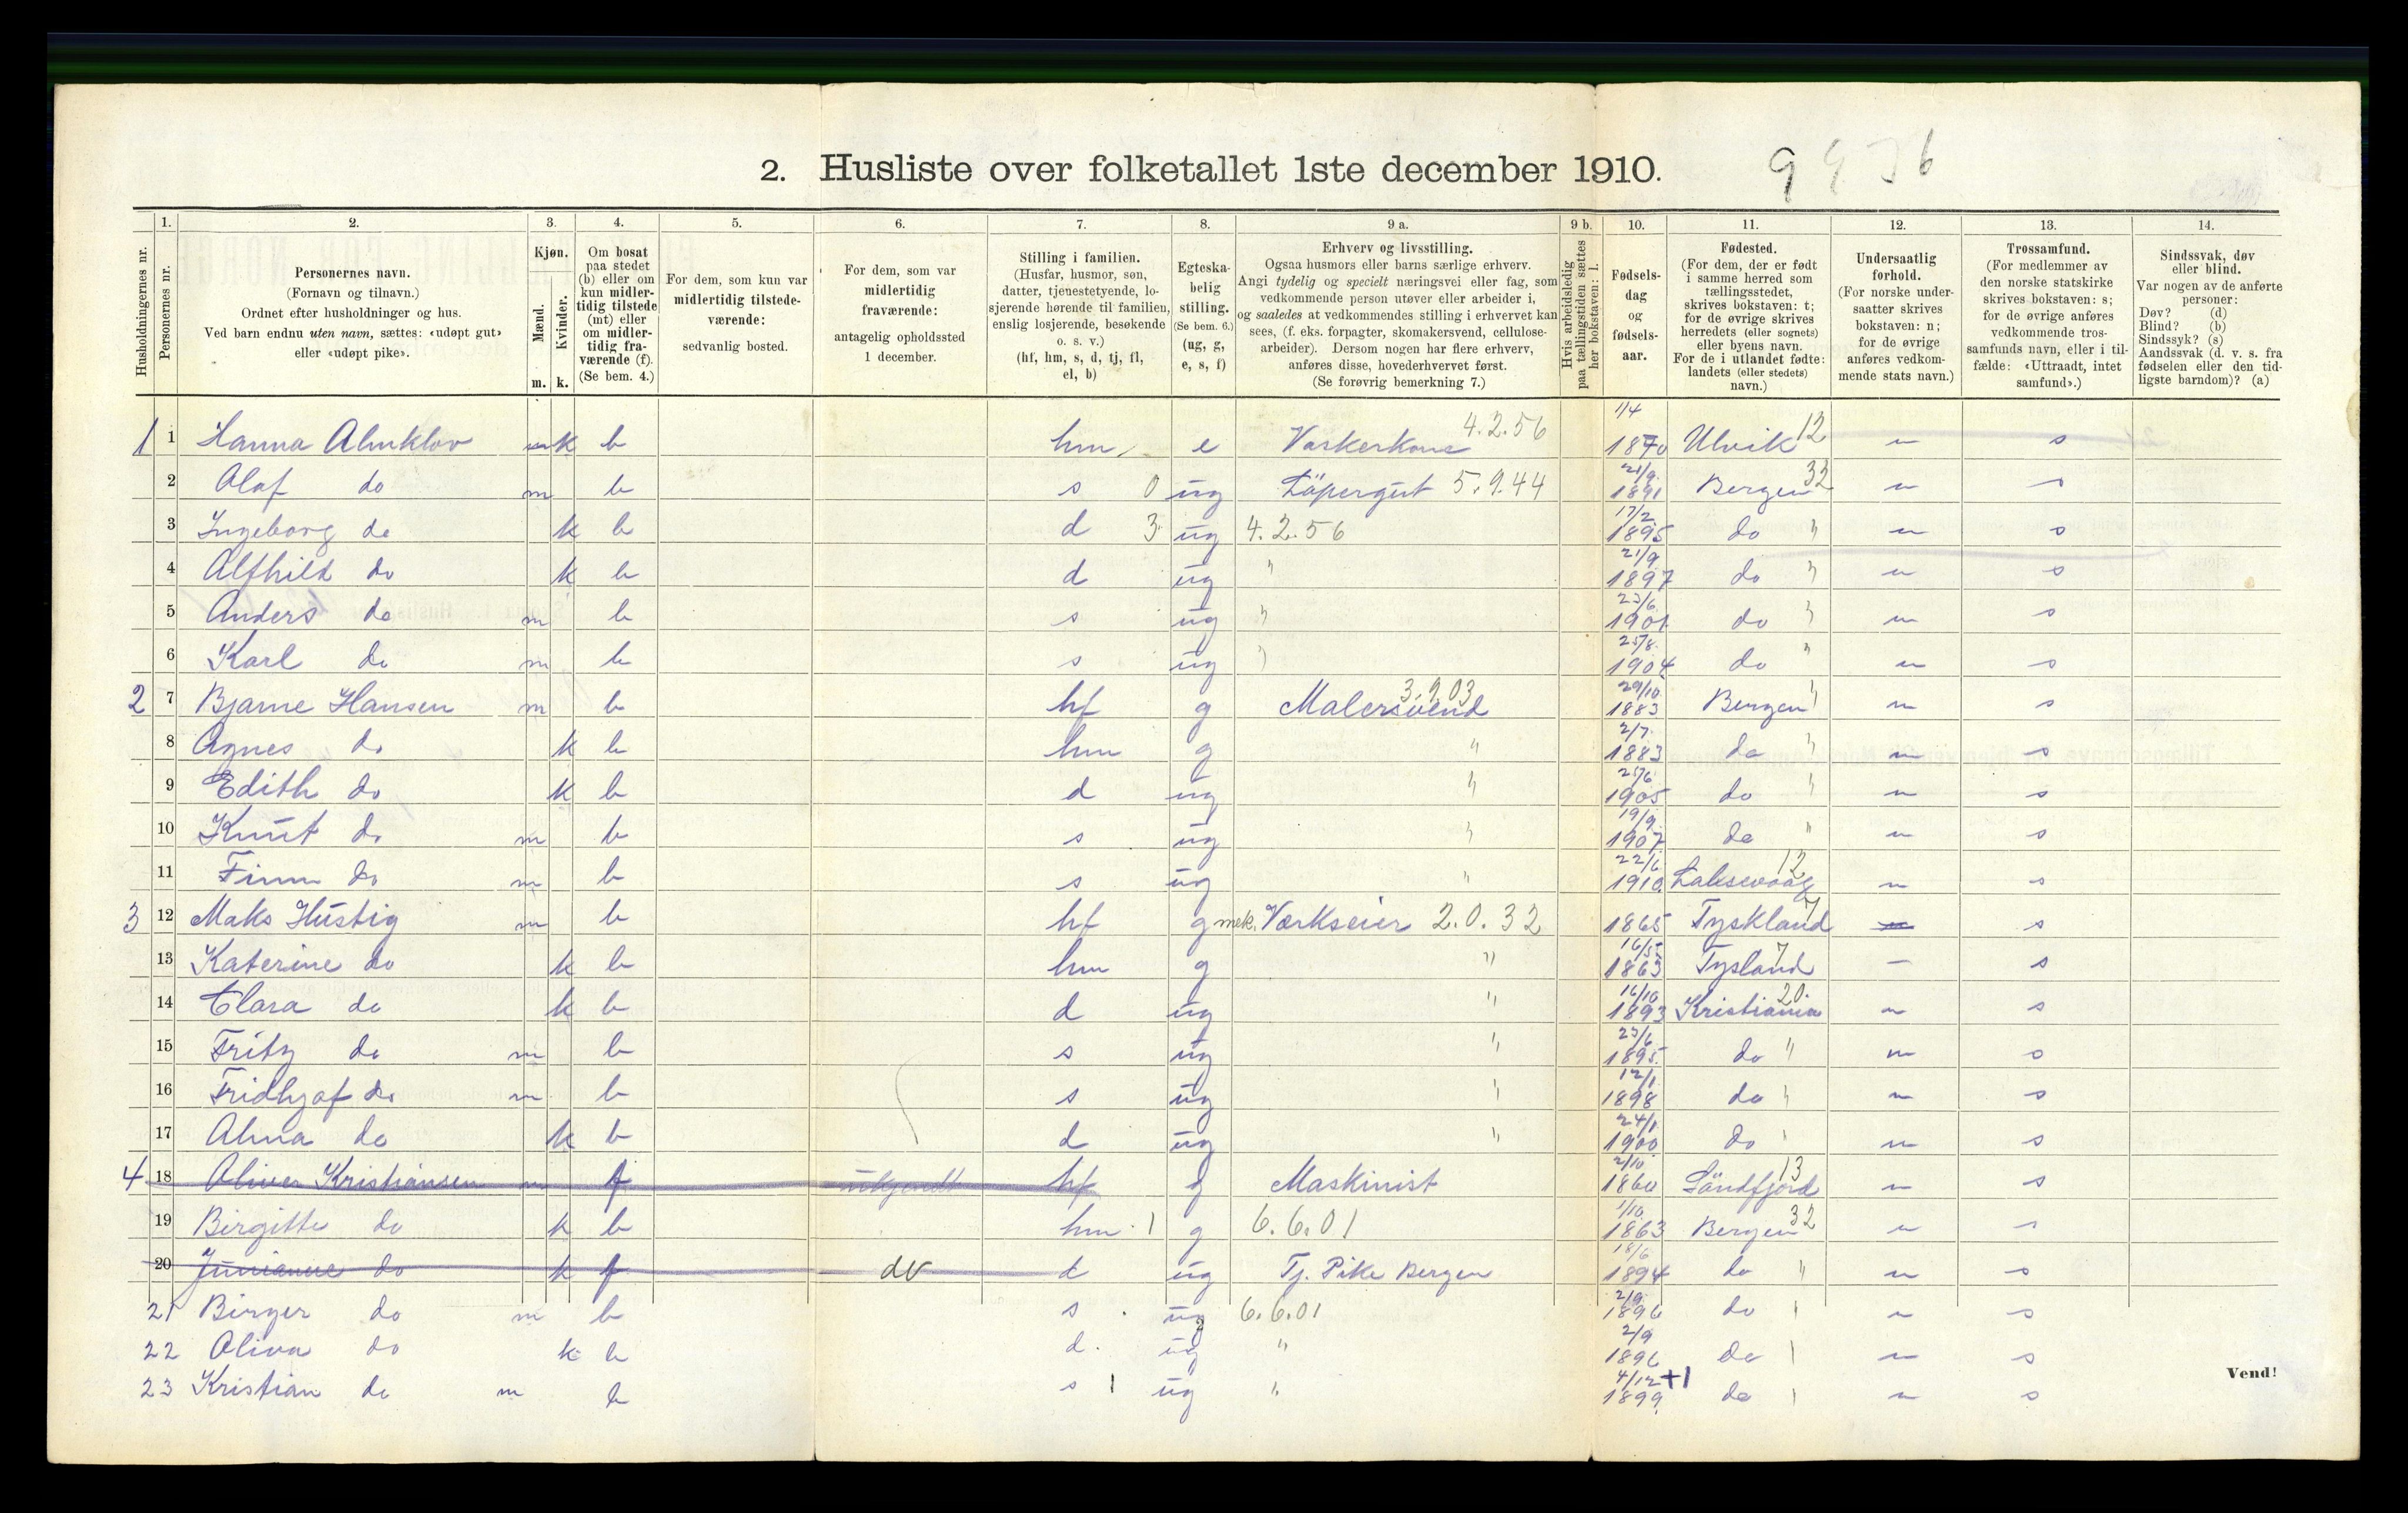 2. Husliste over folketallet 1ste december 1910.
1. 2. 3. 4. 5. 6. 7. 8. 9 a. 9 b. 10. 11. 12. 13. 14.
Husholdningernes nr.
Personernes nr.
Personernes navn.
(Fornavn og tilnavn.)
Ordnet efter husholdninger og hus.
Ved barn endnu uten navn, sættes: «udøpt gut»
eller «udøpt pike».
Kjøn.
Mænd.
Kvinder.
m. k.
Om bosat
paa stedet
(b) eller om
kun midler-
tidig tilstede
(mt) eller
om midler-
tidig fra-
værende (f).
(Se bem. 4.)
For dem, som kun var
midlertidig tilstede-
værende:
sedvanlig bosted.
For dem, som var
midlertidig
fraværende:
antagelig opholdssted
1 december.
Stilling i familien.
(Husfar, husmor, søn,
datter, tjenestetyende, lo-
sjerende hørende til familien,
enslig losjerende, besøkende
o. s. v.)
(hf, hm, s, d, tj, fl,
el, b)
Egteska-
belig
stilling.
(Se bem. 6.)
(ug, g,
e, s, f)
Erhverv og livsstilling.
Ogsaa husmors eller barns særlige erhverv.
Angi tydelig og specielt næringsvei eller fag, som
vedkommende person utøver eller arbeider i,
og saaledes at vedkommendes stilling i erhvervet kan
sees, (f. eks. forpagter, skomakersvend, cellulose-
arbeider). Dersom nogen har flere erhverv,
anføres disse, hovederhvervet først.
(Se forøvrig bemerkning 7.)
Hvis arbeidsledig
paa tællingstiden sættes
her bokstaven: l.
Fødsels-
dag
og
fødsels-
aar.
Fødested.
(For dem, der er født
i samme herred som
tællingsstedet,
skrives bokstaven: t;
for de øvrige skrives
herredets (eller sognets)
eller byens navn.
For de i utlandet fødte:
landets (eller stedets)
navn.)
Undersaatlig
forhold.
(For norske under-
saatter skrives
bokstaven: n;
for de øvrige
anføres vedkom-
mende stats navn.)
Trossamfund.
(For medlemmer av
den norske statskirke
skrives bokstaven: s;
for de øvrige anføres
vedkommende tros-
samfunds navn, eller i til-
fælde: «Uttraadt, intet
samfund».)
Sindssvak, døv
eller blind.
Var nogen av de anførte
personer:
Døv? (d)
Blind? (b)
Sindssyk? (s)
Aandssvak (d. v. s. fra
fødselen eller den tid-
ligste barndom)? (a)
1 1 Hanna Almklov k b hm e Vaskerkone 4.2.56 1/4 1870 Ulvik 12 n s
2 Olaf do m b s 0 ug Löpergut 5.9.44 21/9 1891 Bergen 32 n s
3 Ingeborg do k b d 3 ug 4.2.56 17/2 1895 do " n s
4 Alfhild do k b d ug " 21/9 1897 do " n s
5 Anders do m b s ug " 23/6 1901 do " n s
6 Karl do m b s ug " 25/8 1904 do " n s
2 7 Bjarne Hansen m b hf g Malersvend 3.9.03 29/10 1883 Bergen " n s
8 Agnes do k b hm g " 2/7 1883 do " n s
9 Edith do k b d ug " 25/6 1905 do " n s
10 Knut do m b s ug " 19/9 1907 do " n s
11 Finn do m b s ug " 22/6 1910 Laksevaag 12 n s
3 12 Maks Hustig m b hf g mek. Værkseier 2.0.32 1865 Tyskland 7 s
13 Katerine do k b hm g " 16/5 1863 Tysland 7 – s
14 Clara do k b d ug " 16/10 1893 Kristiania 20. n s
15 Fritz do m b s ug " 23/6 1895 do " n s
16 Fridhjof do m b s ug " 12/1 1898 do " n s
17 Alma do k b d ug " 24/1 1900 do " n s
4 18 Oliver Kristiansen m f ukjendt hf g Maskinist 2/10 1860 Söndfjord 13 n s
19 Birgitte do k b hm 1 g 6.6.01 1/10 1863 Bergen 32 n s
20 do k f do d ug Tj. Pike Bergen 18/6 1894 do " n s
21 Birger do m b s ug 6.6.01 2/9 1896 do " n s
22 Oliva do k b d ug " 2/9 1896 do " n s
23 Kristian do m b s 1 ug " 4/12 +1 1899 do " n s
Vend!